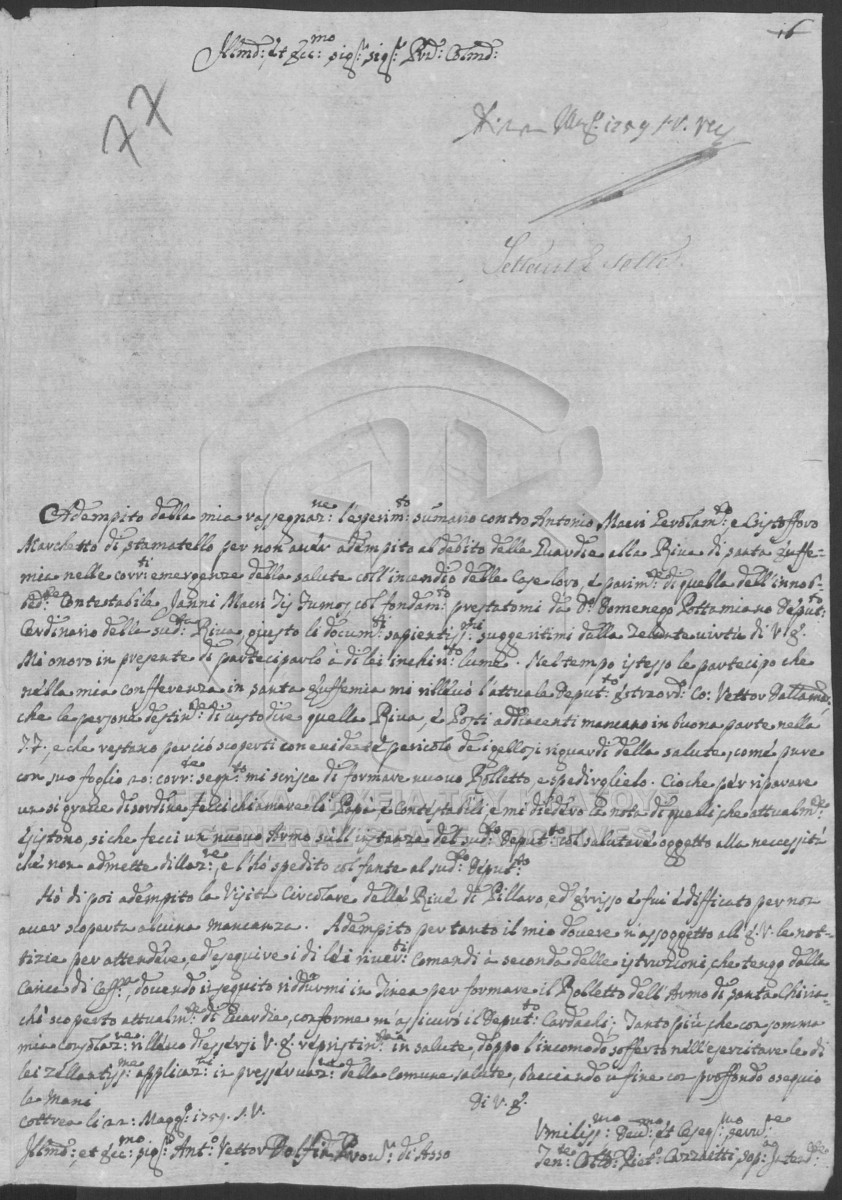 16
Illmo: et Ecc:mo Sig:r Sig:r Pron: Colmo:
77
22 Magg:o 1759 S.V. Rcc
Adempito dalla mia rassegnaz:ne l'esperim:to sumario contro Antonio Macri Gerolamo, e Cristofforo
Marchetto di Stamatello per non aver adempito al debito delle Guardie alla Riva di Santa Euffe-
mia nelle corr:ti emergenze della salute coll'incendio delle Case loro, e parim:te di quella dell'innob-
bed:te Contestabile Janni Macri col fondam:to prestatomi da D:r Domenego Pottamiano Deput:to
Ordinario della sud:ta Riva, giusto li docum:ti sapientiss:mi suggeritimi dalla Zelante virtù di V.E.
Mi onoro in presente di parteciparlo à di lei inchin:to lume. Nel tempo istesso le partecipo che
nella mia confferenza in Santa Euffemia mi rillevò l'attuale Deput:to Estraord:o Co: Vettor Dallamar,
che le persone destin:te di custodire quella Riva, e Porti addiacenti mancano in buona parte nella
, e che restano perciò scoperti con evidente pericolo dei gellosi riguardi della salute, come pure
con suo foglio 20: corr:te segn:to mi scrisse di formare nuovo Rolletto, e spedirglielo. Cioche per riparare
un sì grave disordine feci chiamare li Papà, e Contestabili, e mi diedero la nota di quelli, che attualm:te
Esistono, siche feci un nuovo Armo sull'instanza del sud:to Deput:to col salutare oggetto alla necessità
che non admette dillaz:ne, e l'hò spedito col fante al sud:to Deput:to
Hò di poi adempito la visita Circolare delle Rive di Pillaro, ed Erisso e fui edifficato per non
aver scoperta alcuna mancanza. Adempito per tanto il mio dovere rassoggetto all'E.V. le not-
tizie per attendere, ed eseguire i di lei river:ti Comandi à seconda delle istruzzioni, che tengo dalla
Carica di Ceff:a, dovendo in seguito riddurmi in Tinea per formare il Rolletto dell'Armo di Santa Chiria-
chi scoperto attualm:te di Guardie, conforme m'assicurò il Deput:to Cardachi; Tanto più che con somma
mia consolaz:ne rillevo d'essersi V.E. repristin:ta in salute, doppo l'incomodo sofferto nell'esercitare le di
lei zellantiss:me applicaz:ni in presservaz:ne della Comune salute, Bacciando in fine con proffondo osequio
le mani
Di V.E.
Cottrea li 22: Magg:o 1759. S.V.
Illmo: et Ecc:mo Sig:r Ant:o Vettor Dolfin Prov:r di Asso
Umiliss:mo Dev:mo et Oseq:mo Serv:re
Ten:te Coll:o Piet:o Cazzaetti Sop:a Intend:te